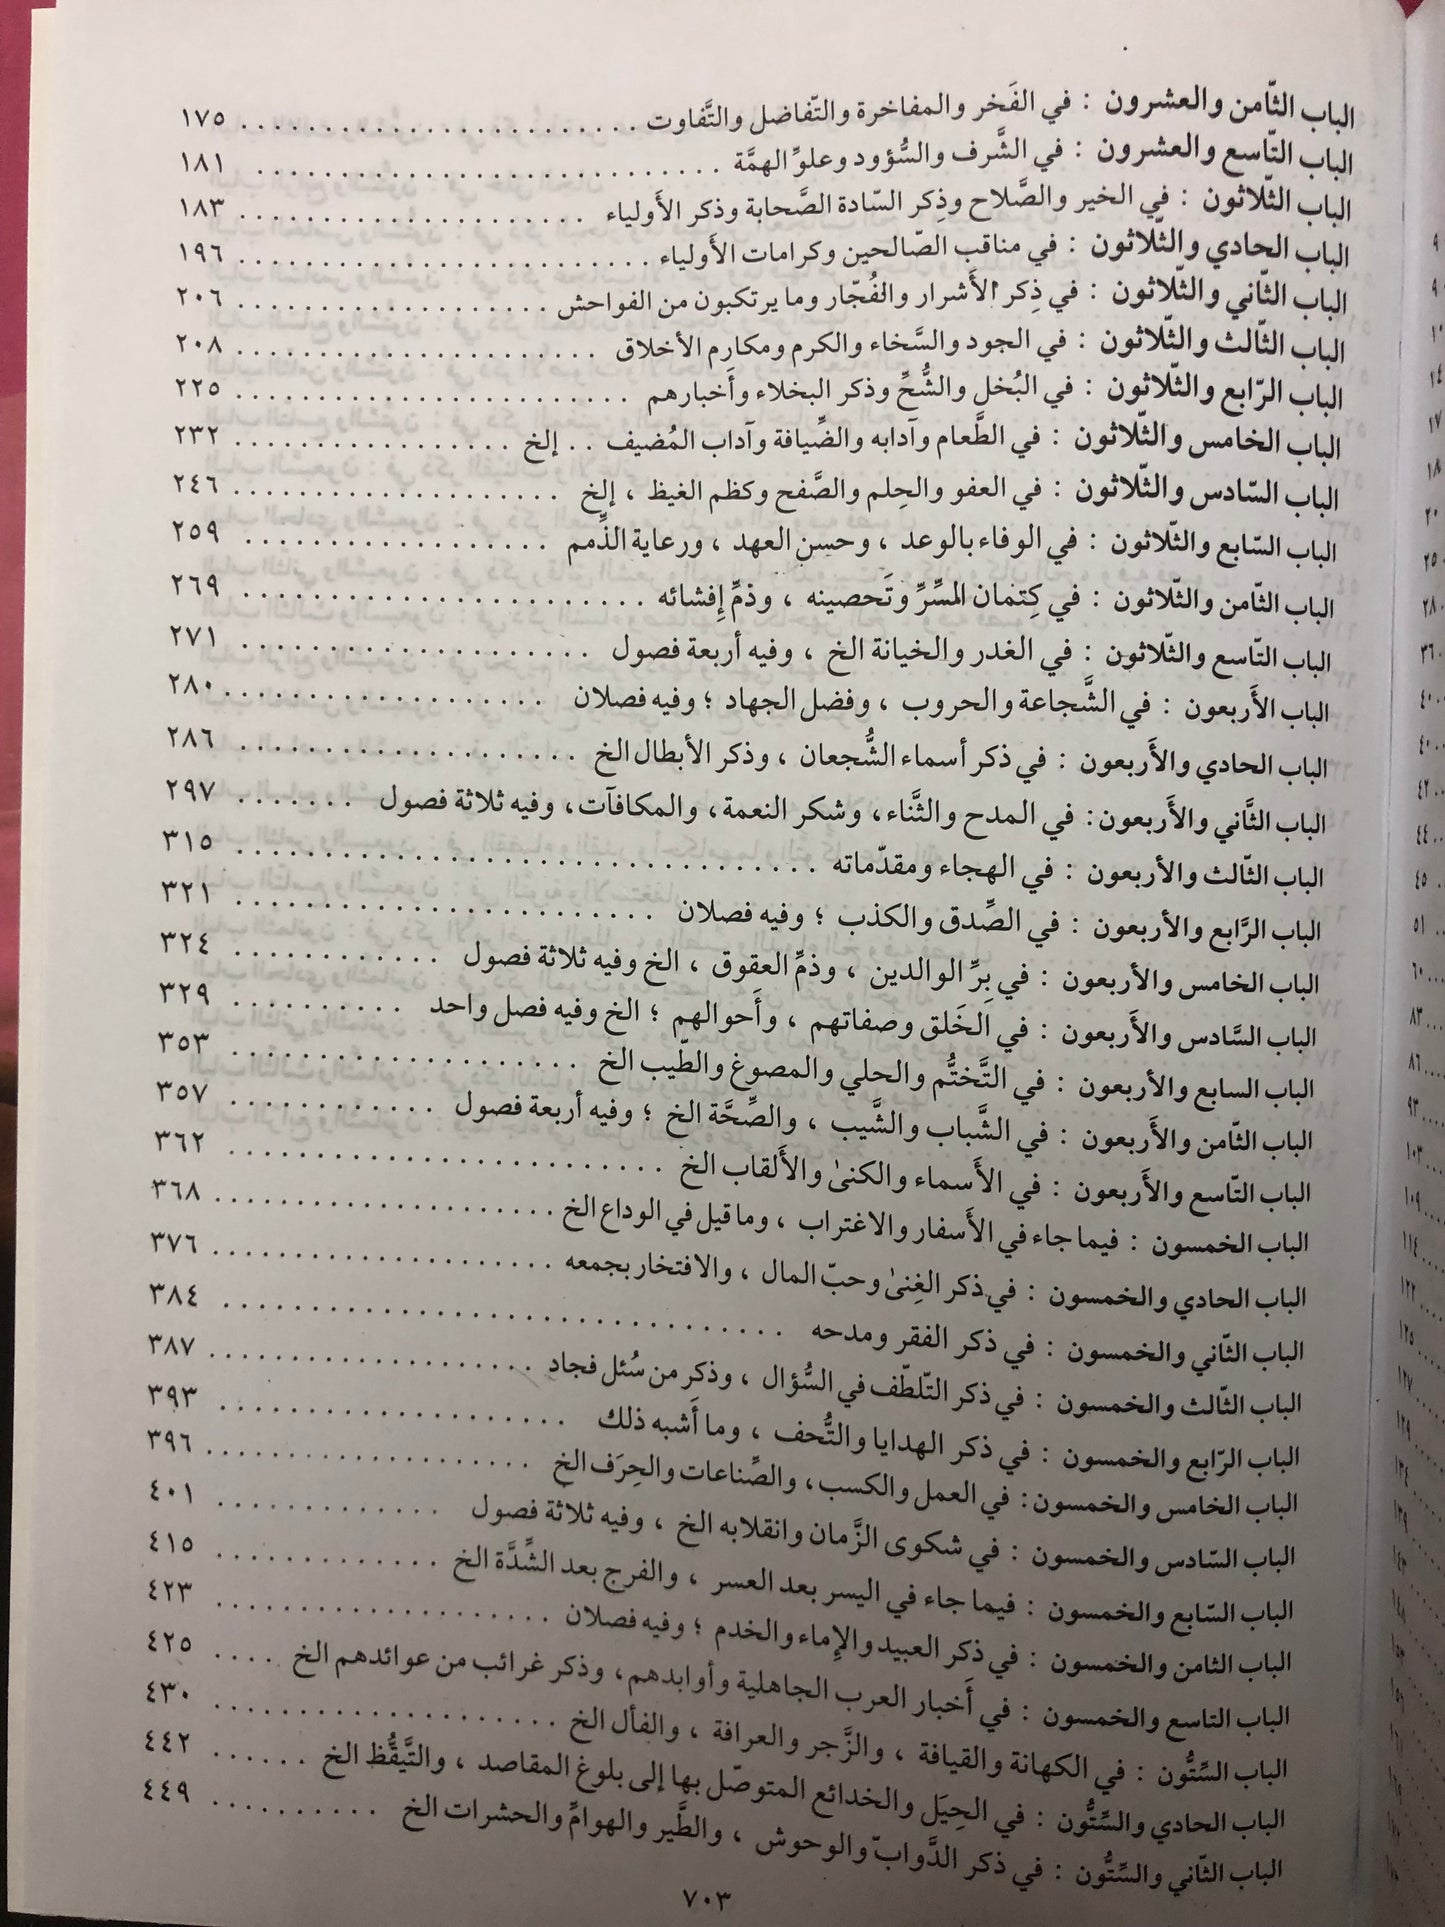 الباب الثّامن والعشرون : في الفَخر والمفاخرة والتّفاضل والتَّفاوت . . . . . . . . . . . . . . . . . . . . . . . ١٧٥
الباب التّاسع والعشرون : في الشَّرف والسُّؤود وعلوِّ الهمَّة . . . . . . . . . . . . . . . . . . . . . . . . . . . ١٨١
الباب الثّلاثون : في الخير والصَّلاح وذِكر السّادة الصَّحابة وذكر الأَولياء . . . . . . . . . . . . . . . . . . . . ١٨٣
الباب الحادي والثّلاثون : في مناقب الصّالحين وكرامات الأَولياء . . . . . . . . . . . . . . . . . . . . . . . . ١٩٦
الباب الثّاني والثّلاثون : في ذِكر الأَشرار والفُجّار وما يرتكبون من الفواحش . . . . . . . . . . . . . . . . . . ٢٠٦
الباب الثّالث والثّلاثون : في الجود والسَّخاء والكرم ومكارم الأخلاق . . . . . . . . . . . . . . . . . . . . . ٢٠٨
الباب الرّابع والثّلاثون : في البُخل والشُّحِّ وذكر البخلاء وأَخبارهم . . . . . . . . . . . . . . . . . . . . . . . ٢٢٥
الباب الخامس والثّلاثون : في الطَّعام وآدابه والضِّيافة وآداب المُضيف . . إلخ . . . . . . . . . . . . . . . . ٢٣٢
الباب السّادس والثّلاثون : في العفو والحِلم والصَّفح وكظم الغيظ ، إلخ . . . . . . . . . . . . . . . . . . . ٢٤٦
الباب السّابع والثّلاثون : في الوفاء بالوعد ، وحسن العهد ، ورعاية الذِّمم . . . . . . . . . . . . . . . . . . ٢٥٩
الباب الثّامن والثّلاثون : في كِتمان السِّرِّ وتَحصينه ، وذمِّ إِفشائه . . . . . . . . . . . . . . . . . . . . . . . ٢٦٩
الباب التّاسع والثّلاثون : في الغدر والخيانة الخ ، وفيه أربعة فصول . . . . . . . . . . . . . . . . . . . . ٢٧١
الباب الأَربعون : في الشَّجاعة والحروب ، وفضل الجهاد ؛ وفيه فصلان . . . . . . . . . . . . . . . . . . . ٢٨٠
الباب الحادي والأَربعون : في ذكر أسماء الشُّجعان ، وذكر الأبطال الخ . . . . . . . . . . . . . . . . . . . ٢٨٦
الباب الثَّاني والأَربعون: في المدح والثَّناء، وشكر النعمة، والمكافآت، وفيه ثلاثة فصول . . . . . . . ٢٩٧
الباب الثّالث والأربعون : في الهجاء ومقدّماته . . . . . . . . . . . . . . . . . . . . . . . . . . . . . . . . . ٣١٥
الباب الرَّابع والأربعون : في الصِّدق والكذب ؛ وفيه فصلان . . . . . . . . . . . . . . . . . . . . . . . . . ٣٢١
الباب الخامس والأربعون : في بِرِّ الوالدين ، وذمِّ العقوق ، الخ وفيه ثلاثة فصول . . . . . . . . . . . . ٣٢٤
الباب السَّادس والأَربعون : في الخَلق وصفاتهم ، وأَحوالهم ؛ الخ وفيه فصل واحد . . . . . . . . . . ٣٢٩
الباب السابع والأربعون : في التَّختُّم والحلي والمصوغ والطّيب الخ . . . . . . . . . . . . . . . . . . . . ٣٥٣
الباب الثّامن والأَربعون : في الشَّباب والشَّيب ، والصِّحَّة الخ ؛ وفيه أربعة فصول . . . . . . . . . . . . ٣٥٧
الباب التّاسع والأَربعون : في الأَسماء والكنىٰ والأَلقاب الخ . . . . . . . . . . . . . . . . . . . . . . . . . ٣٦٢
الباب الخمسون : فيما جاء في الأَسفار والاغتراب ، وما قيل في الوداع الخ . . . . . . . . . . . . . . . . . . . ٣٦٨
الباب الحادي والخمسون : في ذكر الغِنىٰ وحبّ المال ، والافتخار بجمعه . . . . . . . . . . . . . . . . . . . ٣٧٦
الباب الثّاني والخمسون : في ذكر الفقر ومدحه . . . . . . . . . . . . . . . . . . . . . . . . . . . . . . . . ٣٨٤
الباب الثّالث والخمسون : في ذكر التّلطّف في السُّؤال ، وذكر من سُئل فجاد . . . . . . . . . . . . . . . . . . . ٣٨٧
الباب الرّابع والخمسون : في ذكر الهدايا والتُّحف ، وما أَشبه ذلك . . . . . . . . . . . . . . . . . . . . ٣٩٣
الباب الخامس والخمسون: في العمل والكسب، والصِّناعات والحِرَف الخ . . . . . . . . . . . . . . . . . . . ٣٩٦
الباب السّادس والخمسون : في شكوى الزَّمان وانقلابه الخ ، وفيه ثلاثة فصول . . . . . . . . . . . . . ٤٠١
الباب السّابع والخمسون : فيما جاء في اليسر بعد العسر ، والفرج بعد الشِّدَّة الخ . . . . . . . . . . . . . ٤١٥
الباب الثامن والخمسون : في ذكر العبيد والإِماء والخدم ؛ وفيه فصلان . . . . . . . . . . . . . . . . . . . ٤٢٣
الباب التاسع والخمسون : في أَخبار العرب الجاهلية وأوابدهم، وذكر غرائب من عوائدهم الخ . . . . ٤٢٥
الباب السِّتُّون : في الكهانة والقيافة ، والزَّجر والعرافة ، والفأل الخ . . . . . . . . . . . . . . . . . . . . ٤٣٠
الباب الحادي والسِّتُّون : في الحِيَل والخدائع المتوصّل بها إلى بلوغ المقاصد ، والتَّيقُّظ الخ . . . . . . ٤٤٢
الباب الثّاني والسِّتُّون : في ذكر الدَّوابّ والوحوش ، والطَّير والهوامِّ والحشرات الخ . . . . . . . . . . ٤٤٩
٧٠٣